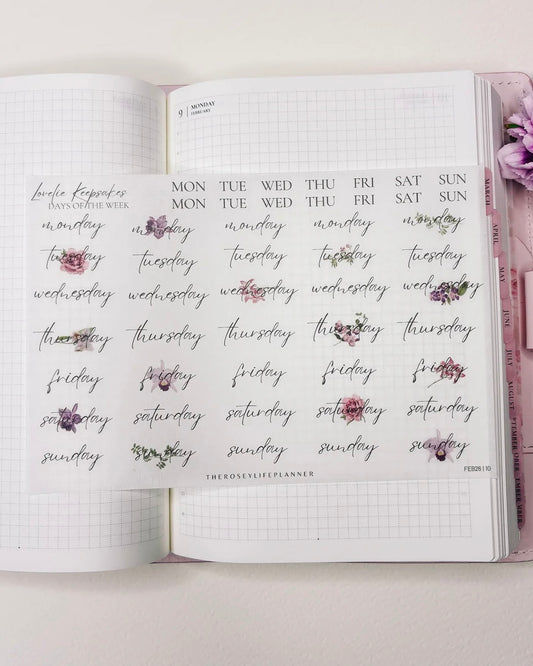 9 | MONDAY
FEBRUARY
Lovelie Keepsakes
DAYS OF THE WEEK
MON TUE WED THU FRI SAT SUN
MON TUE WED THU FRI SAT SUN
monday monday monday monday monday
tuesday tuesday tuesday tuesday tuesday
wednesday wednesday wednesday wednesday wednesday
thursday thursday thursday thursday thursday
friday friday friday friday friday
saturday saturday saturday saturday saturday
sunday sunday sunday sunday sunday
THEROSEYLIFEPLANNER
FEB26 | 10
MARCH
APRIL
MAY
JUNE
JULY
AUGUST